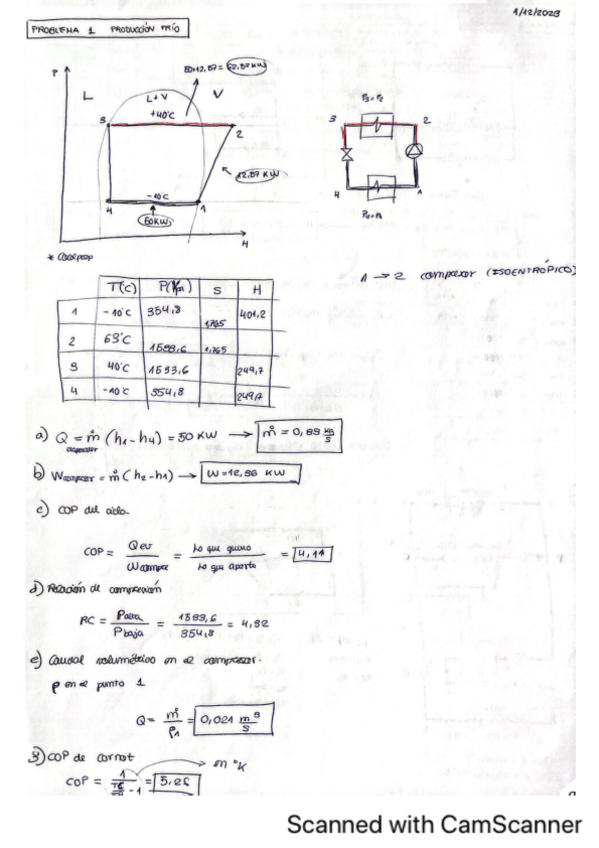 1/12/2023
PROBLEMA 1 PRODUCCIÓN FRÍO
50+12,57= 62,57KW
P
L
L+V
V
+40°C
3
2
12,57 KW
-10°C
4
1
50KW
H
P3=P2
3
2
4
1
* Coolprop
1 → 2 compresor (ISOENTRÓPICO)
T(C) P(Kpa) S H
1 -10°C 354,8 1,765 401,2
2 63°C 1533,6 1,765
3 40°C 1533,6 249,7
4 -10°C 354,8 249,7
a) Q evaporador = ṁ (h1-h4) = 50 KW → ṁ = 0,33 kg/s
b) W compresor = ṁ (h2-h1) → W=12,56 KW
c) COP del ciclo.
COP = Qev / W compre = Lo que quiero / Lo que aporto = 4,11
d) Relación de compresión
RC = Palta / Pbaja = 1533,6 / 354,8 = 4,32
e) Caudal volumétrico en el compresor.
ρ en el punto 1
Q = ṁ / ρ1 = 0,021 m³/s
f) COP de carnot
en °K
COP = 1 / -1 = 5,26
Scanned with CamScanner